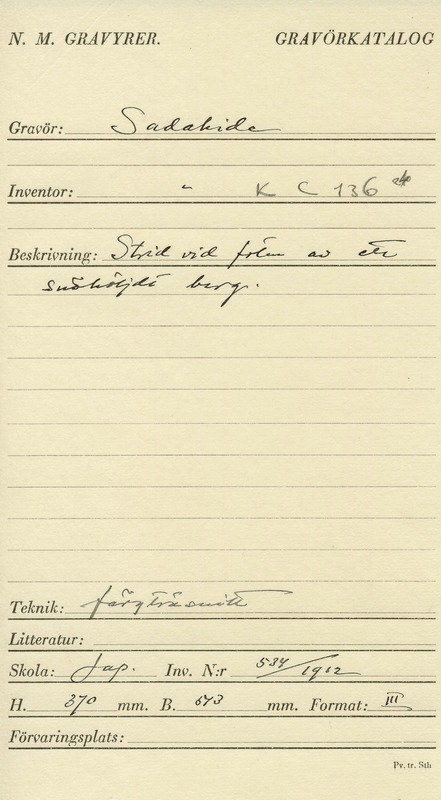 N. M. GRAVYRER. GRAVÖRKATALOG
Gravör: Sadahide
Inventor: " K C 136
Beskrivning: Strid vid foten av ett
snöhöljdt berg.
Teknik: färgträsnitt
Litteratur:
Skola: Jap. Inv. N:r 534/1912
H. 370 mm. B. mm. Format: III
Förvaringsplats:
Pv. tr. Sth